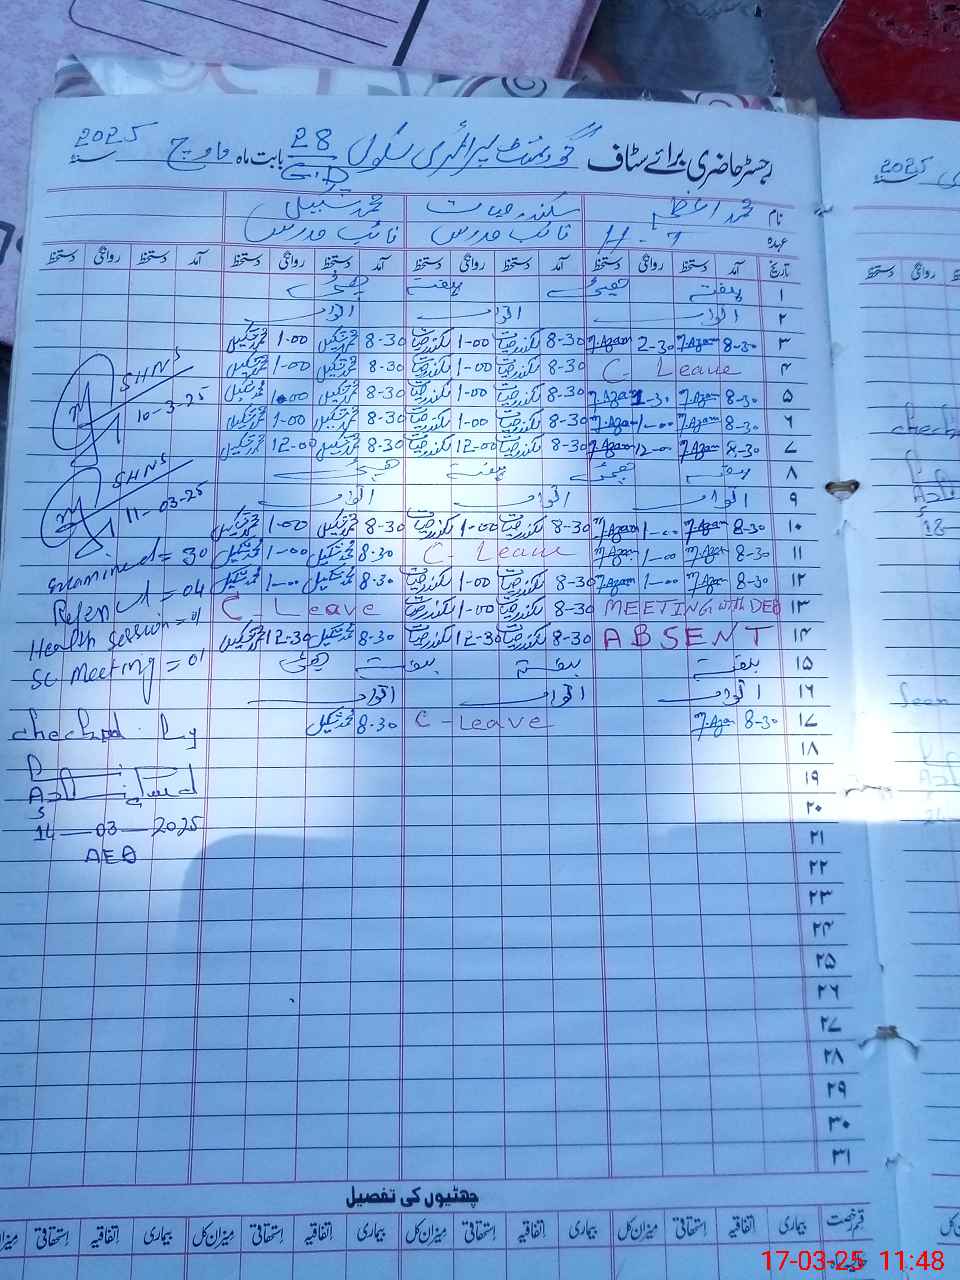 رجسٹر حاضری برائے سٹاف گورنمنٹ پرائمری سکول 28 بابت ماہ مارچ 2025
نام محمد اعظم سکندر حیات محمد شکیل
عہدہ H-T نائب مدرس نائب مدرس
تاریخ آمد دستخط روانگی دستخط آمد دستخط روانگی دستخط آمد دستخط روانگی دستخط آمد دستخط روانگی دستخط
۱ ہفتہ چھٹی ہفتہ چھٹی
۲ اتوار اتوار اتوار
۳ 8-30 M.Azam 2-30 M.Azam 8-30 سکندر حیات 1-00 سکندر حیات 8-30 محمد شکیل 1-00 محمد شکیل
۴ C- Leave 8-30 سکندر حیات 1-00 سکندر حیات 8-30 محمد شکیل 1-00 محمد شکیل
۵ 8-30 M.Azam 1-30 M.Azam 8-30 سکندر حیات 1-00 سکندر حیات 8-30 محمد شکیل 1-00 محمد شکیل
۶ 8-30 M.Azam 1-00 M.Azam 8-30 سکندر حیات 1-00 سکندر حیات 8-30 محمد شکیل 1-00 محمد شکیل
۷ 8-30 M.Azam 12-00 M.Azam 8-30 سکندر حیات 12-00 سکندر حیات 8-30 محمد شکیل 12-00 محمد شکیل
۸ ہفتہ چھٹی ہفتہ چھٹی
۹ اتوار اتوار اتوار
۱۰ 8-30 M.Azam 1-00 M.Azam 8-30 سکندر حیات 1-00 سکندر حیات 8-30 محمد شکیل 1-00 محمد شکیل
۱۱ 8-30 M.Azam 1-00 M.Azam C- Leave 8-30 محمد شکیل 1-00 محمد شکیل
۱۲ 8-30 M.Azam 1-00 M.Azam 8-30 سکندر حیات 1-00 سکندر حیات 8-30 محمد شکیل 1-00 محمد شکیل
۱۳ MEETING with DEO 8-30 سکندر حیات 1-00 سکندر حیات C- Leave
۱۴ ABSENT 8-30 سکندر حیات 12-30 سکندر حیات 8-30 محمد شکیل 12-30 محمد شکیل
۱۵ ہفتہ ہفتہ ہفتہ چھٹی
۱۶ اتوار اتوار اتوار
۱۷ 8-30 M.Azam C-Leave 8-30 محمد شکیل
۱۸
۱۹
۲۰
۲۱
۲۲
۲۳
۲۴
۲۵
۲۶
۲۷
۲۸
۲۹
۳۰
۳۱
SHNS
10-3-25
SHNS
11-03-25
Examined = 30
Refered = 04
Health session = 01
SC Meeting = 01
checked by
14-03-2025
AEO
چھٹیوں کی تفصیل
قسم رخصت بیماری اتفاقیہ استحقاقی میزان کل بیماری اتفاقیہ استحقاقی میزان کل بیماری اتفاقیہ استحقاقی میزان کل بیماری اتفاقیہ استحقاقی میزان کل
2025
دستخط روانگی
17-03-25 11:48